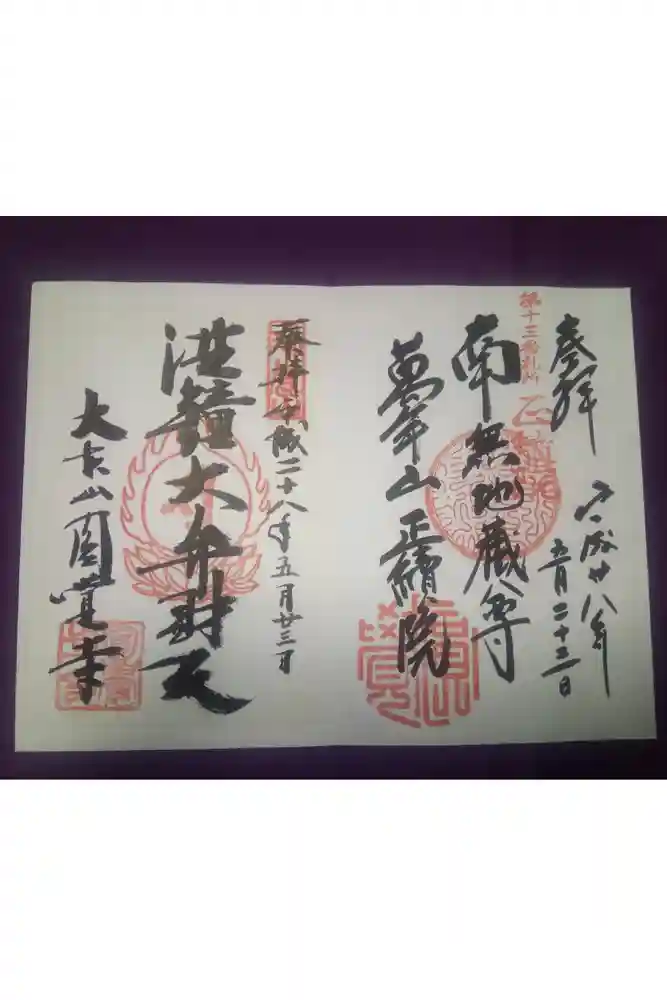 奉拝
平成廿八年
五月二十三日
第十三番札所
南無地蔵尊
萬年山正續院
奉拝平成二十八年五月廿三日
洪鐘大弁財天
大本山圓覚寺